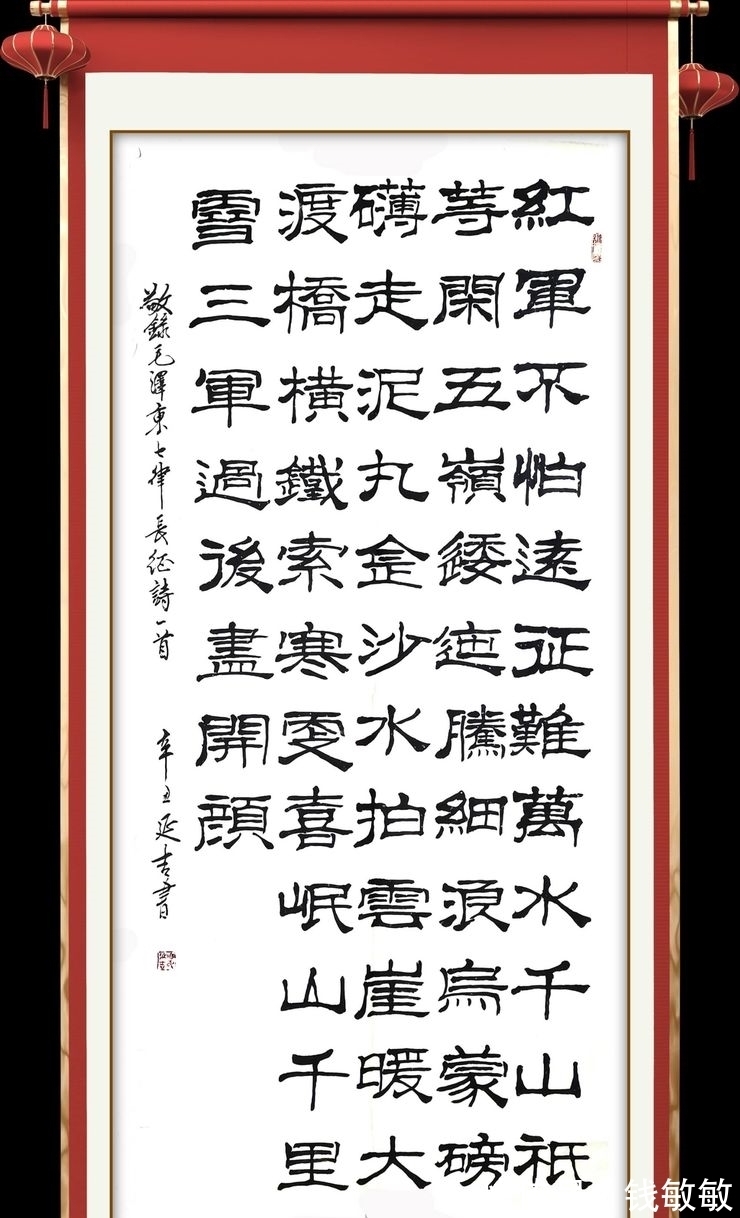 紅軍不怕遠征難萬水千山祇
等閑五嶺逶迤騰細浪烏蒙磅
礴走泥丸金沙水拍雲崖暖大
渡橋橫鐵索寒更喜岷山千里
雪三軍過後盡開顏
敬錄毛澤東七律長征詩一首 辛丑延吉書
钱敏敏